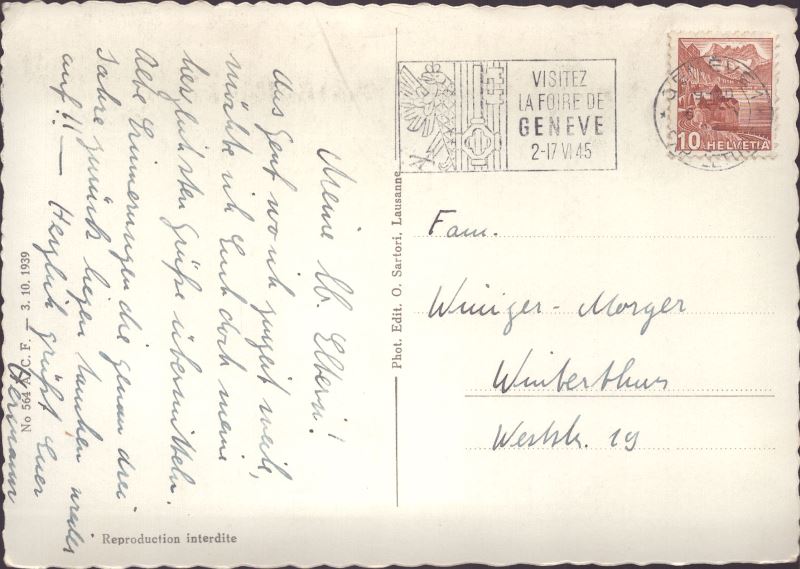 Meine lb. Eltern!
Aus Genf wo ich zurzeit weile,
möchte ich Euch doch meine
herzlichsten Grüße übermitteln.
Alte Erinnerungen die genau drei
Jahre zurück liegen tauchen wieder
auf!! — Herzlich grüßt Euer
Hermann
No 564 A. C. F. — 3. 10. 1939
Reproduction interdite
Phot. Edit. O. Sartori, Lausanne
VISITEZ
LA FOIRE DE
GENÈVE
2-17 VI 45
10 HELVETIA
Fam.
Winiger-Morger
Winterthur
Weststr. 19